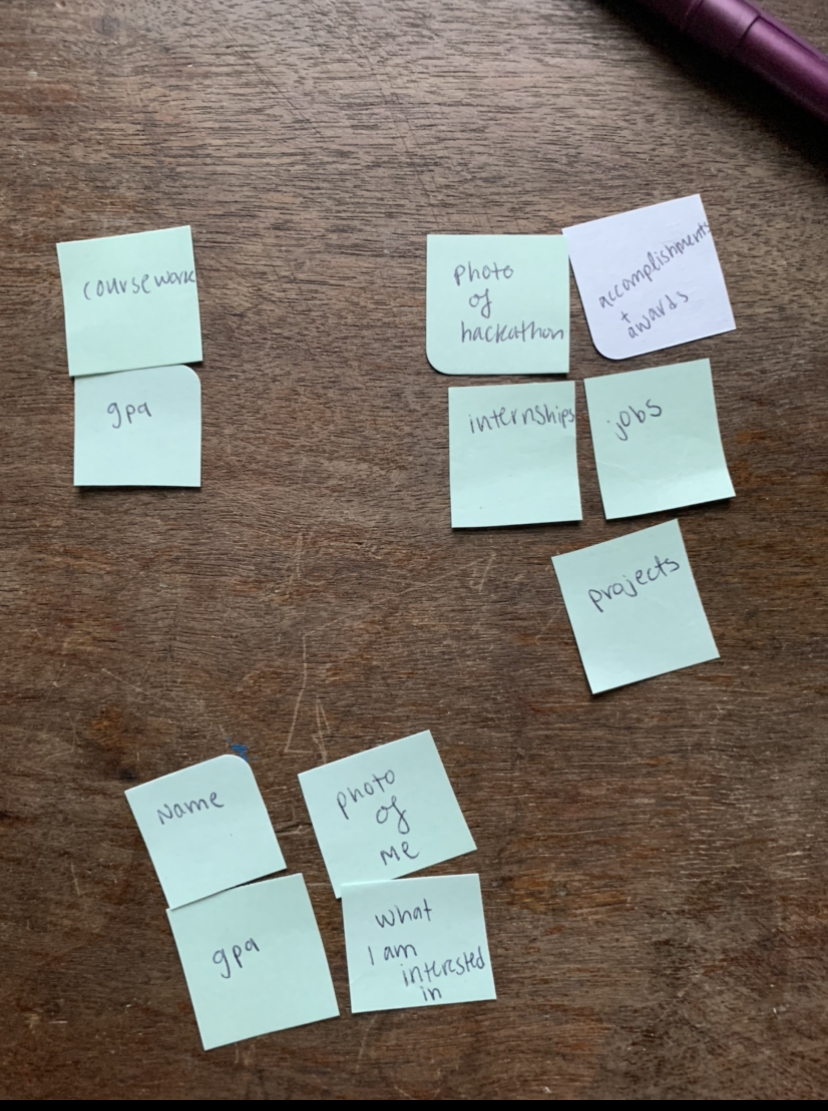 coursework
gpa
photo
of
hackathon
accomplishments
+
awards
internships
jobs
projects
Name
photo
of
me
gpa
what
I am
interested
in